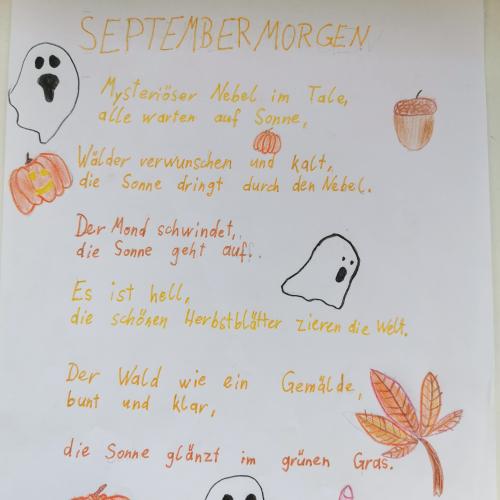 SEPTEMBERMORGEN
Mysteriöser Nebel im Tale,
alle warten auf Sonne,
Wälder verwunschen und kalt,
die Sonne dringt durch den Nebel.
Der Mond schwindet,
die Sonne geht auf.
Es ist hell,
die schönen Herbstblätter zieren die Welt.
Der Wald wie ein Gemälde,
bunt und klar,
die Sonne glänzt im grünen Gras.